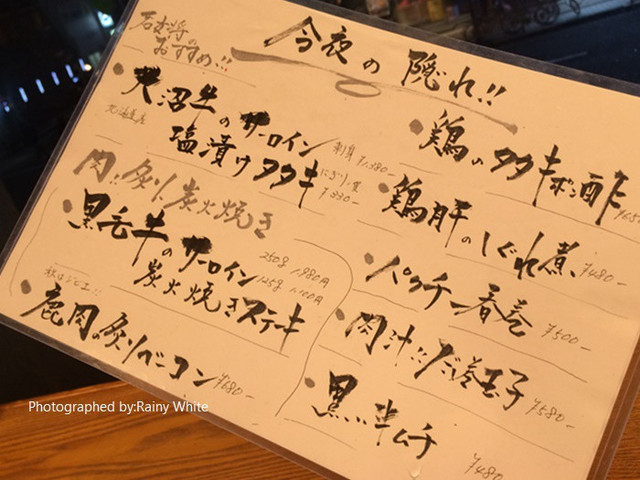 今夜の隠れ!!
若大将の
おすすめ!!
・大沼牛のサーロイン
塩漬けタタキ
刺身 ¥1,380-
にぎり一貫
¥330-
肉!! 炙り 炭火焼き
・黒毛牛のサーロイン
炭火焼きステキ
250g 1,980円
125g 1,100円
秋はジビエ!!
・鹿肉の炙りベーコン ¥680-
・鶏のタタキポン酢 ¥650
・鶏肝のしぐれ煮 ¥480-
・パクチー春巻 ¥500-
・肉汁!!だし巻玉子 ¥580-
・黒いキムチ
¥480-
Photographed by:Rainy White